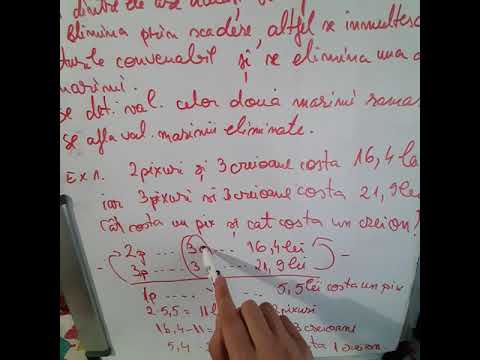 dintre ele
Elimina prin scadere, altfel se inmultesc
convenabil și se elimina una d
marimi.
se det. val. celor două marimi ramas
se afla val. marimii eliminate.
Ex 1. 2 pixuri și 3 creioane costa 16,4 le
iar 3 pixuri si 3 creioane costa 21,9 lei
cât costa un pix și cat costa un creion?
2p .... 3c .... 16,4 lei
3p .... 3 .... 21,9 lei
1p .... 5,5 lei costa un pix
2·5,5 = 11 l pixuri
16,4-11 = 3 creioane
5,4 1 creion